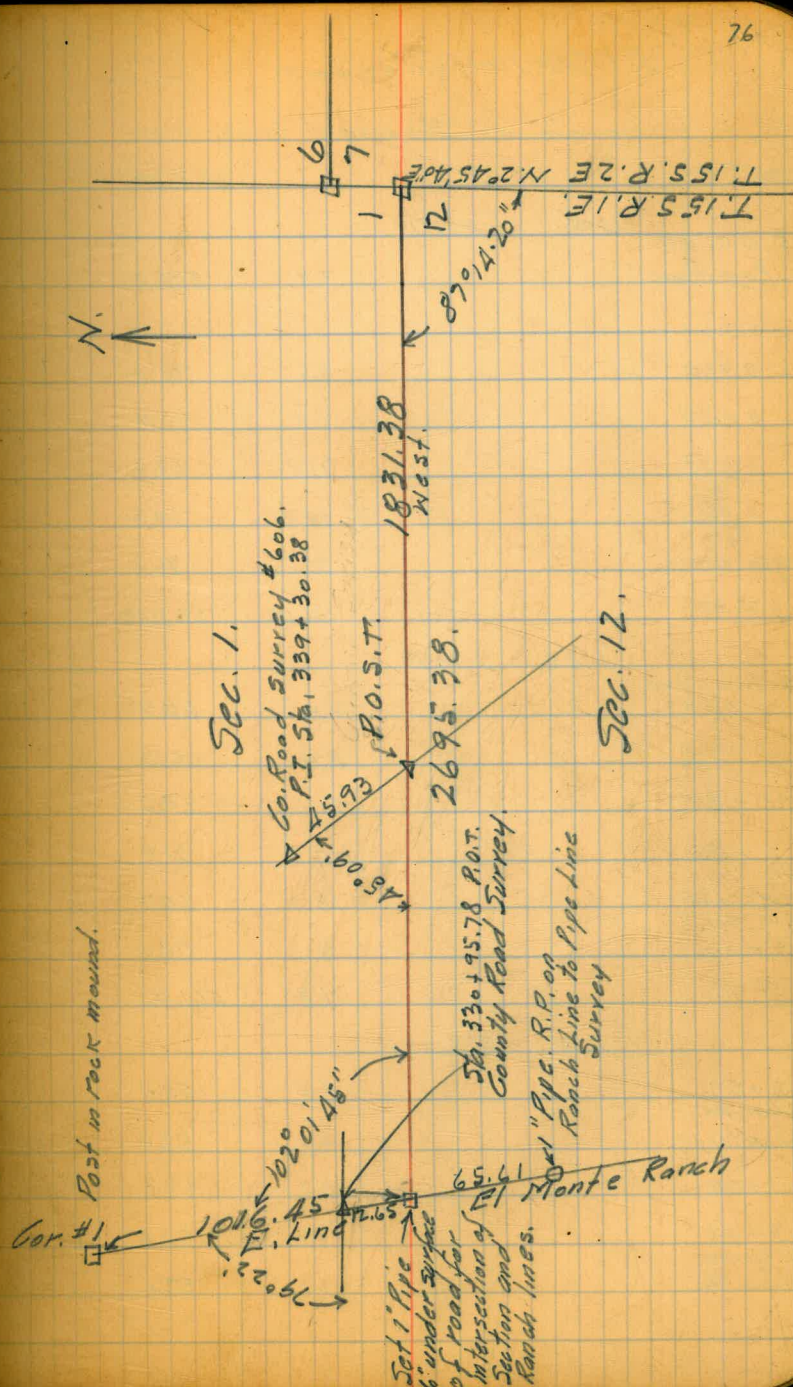 76
6
7
1
12
T.15S.R.2E N.2°45'40"E
T.15S.R.1E.
87°14'20"
N.
1831.38
West.
Sec. 1.
Co. Road Survey #606.
P.I. Sta. 339+30.38
P.O.S.T.
45.93
45°09'
2695.38.
Sec. 12.
Sta. 330+95.78 P.O.T.
County Road Survey.
1" Pipe. R.P. on
Ranch Line to Pipe Line
Survey
Post in rock mound.
Cor. #1
102°01'45"
1016.45
E. Line
79°22'
12.65
El Monte Ranch
Set 1" Pipe
6" under surface
of road for
intersection of
Section and
Ranch lines.